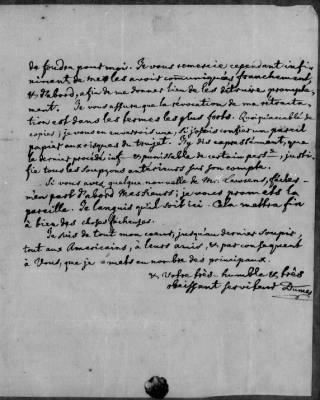 de foudre pour moi. Je vous remercie cependant infi-
niment de me les avoir communiquées franchement,
& d'abord, afin de me donner lieu de les détruire prompte-
ment. Je vous assure que la révocation de ma rétracta-
tion est dans les termes les plus forts. Quoiqu'accablé de
copies, je vous en enverrois une, si j'osois confier un pareil
papier aux risques du trajet. Il y dit expressément, que
le dernier procédé inf & punissable de certain justi-
fie tous les soupçons antérieurs sur son compte.
Si vous avez quelque nouvelle de Mr. Laurens, faites-
m'en part d'abord Messieurs; je vous promets la
pareille. Je languis qu'il soit ici. Cela mettra fin
à bien des choses fâcheuses.
Je suis de tout mon cœur, jusqu'au dernier soupir,
tout aux Américains, à leurs amis, & par conséquent
à Vous, que je mets en nombre des principaux.
& Votre très-humble & très
obéissant serviteur Dumas